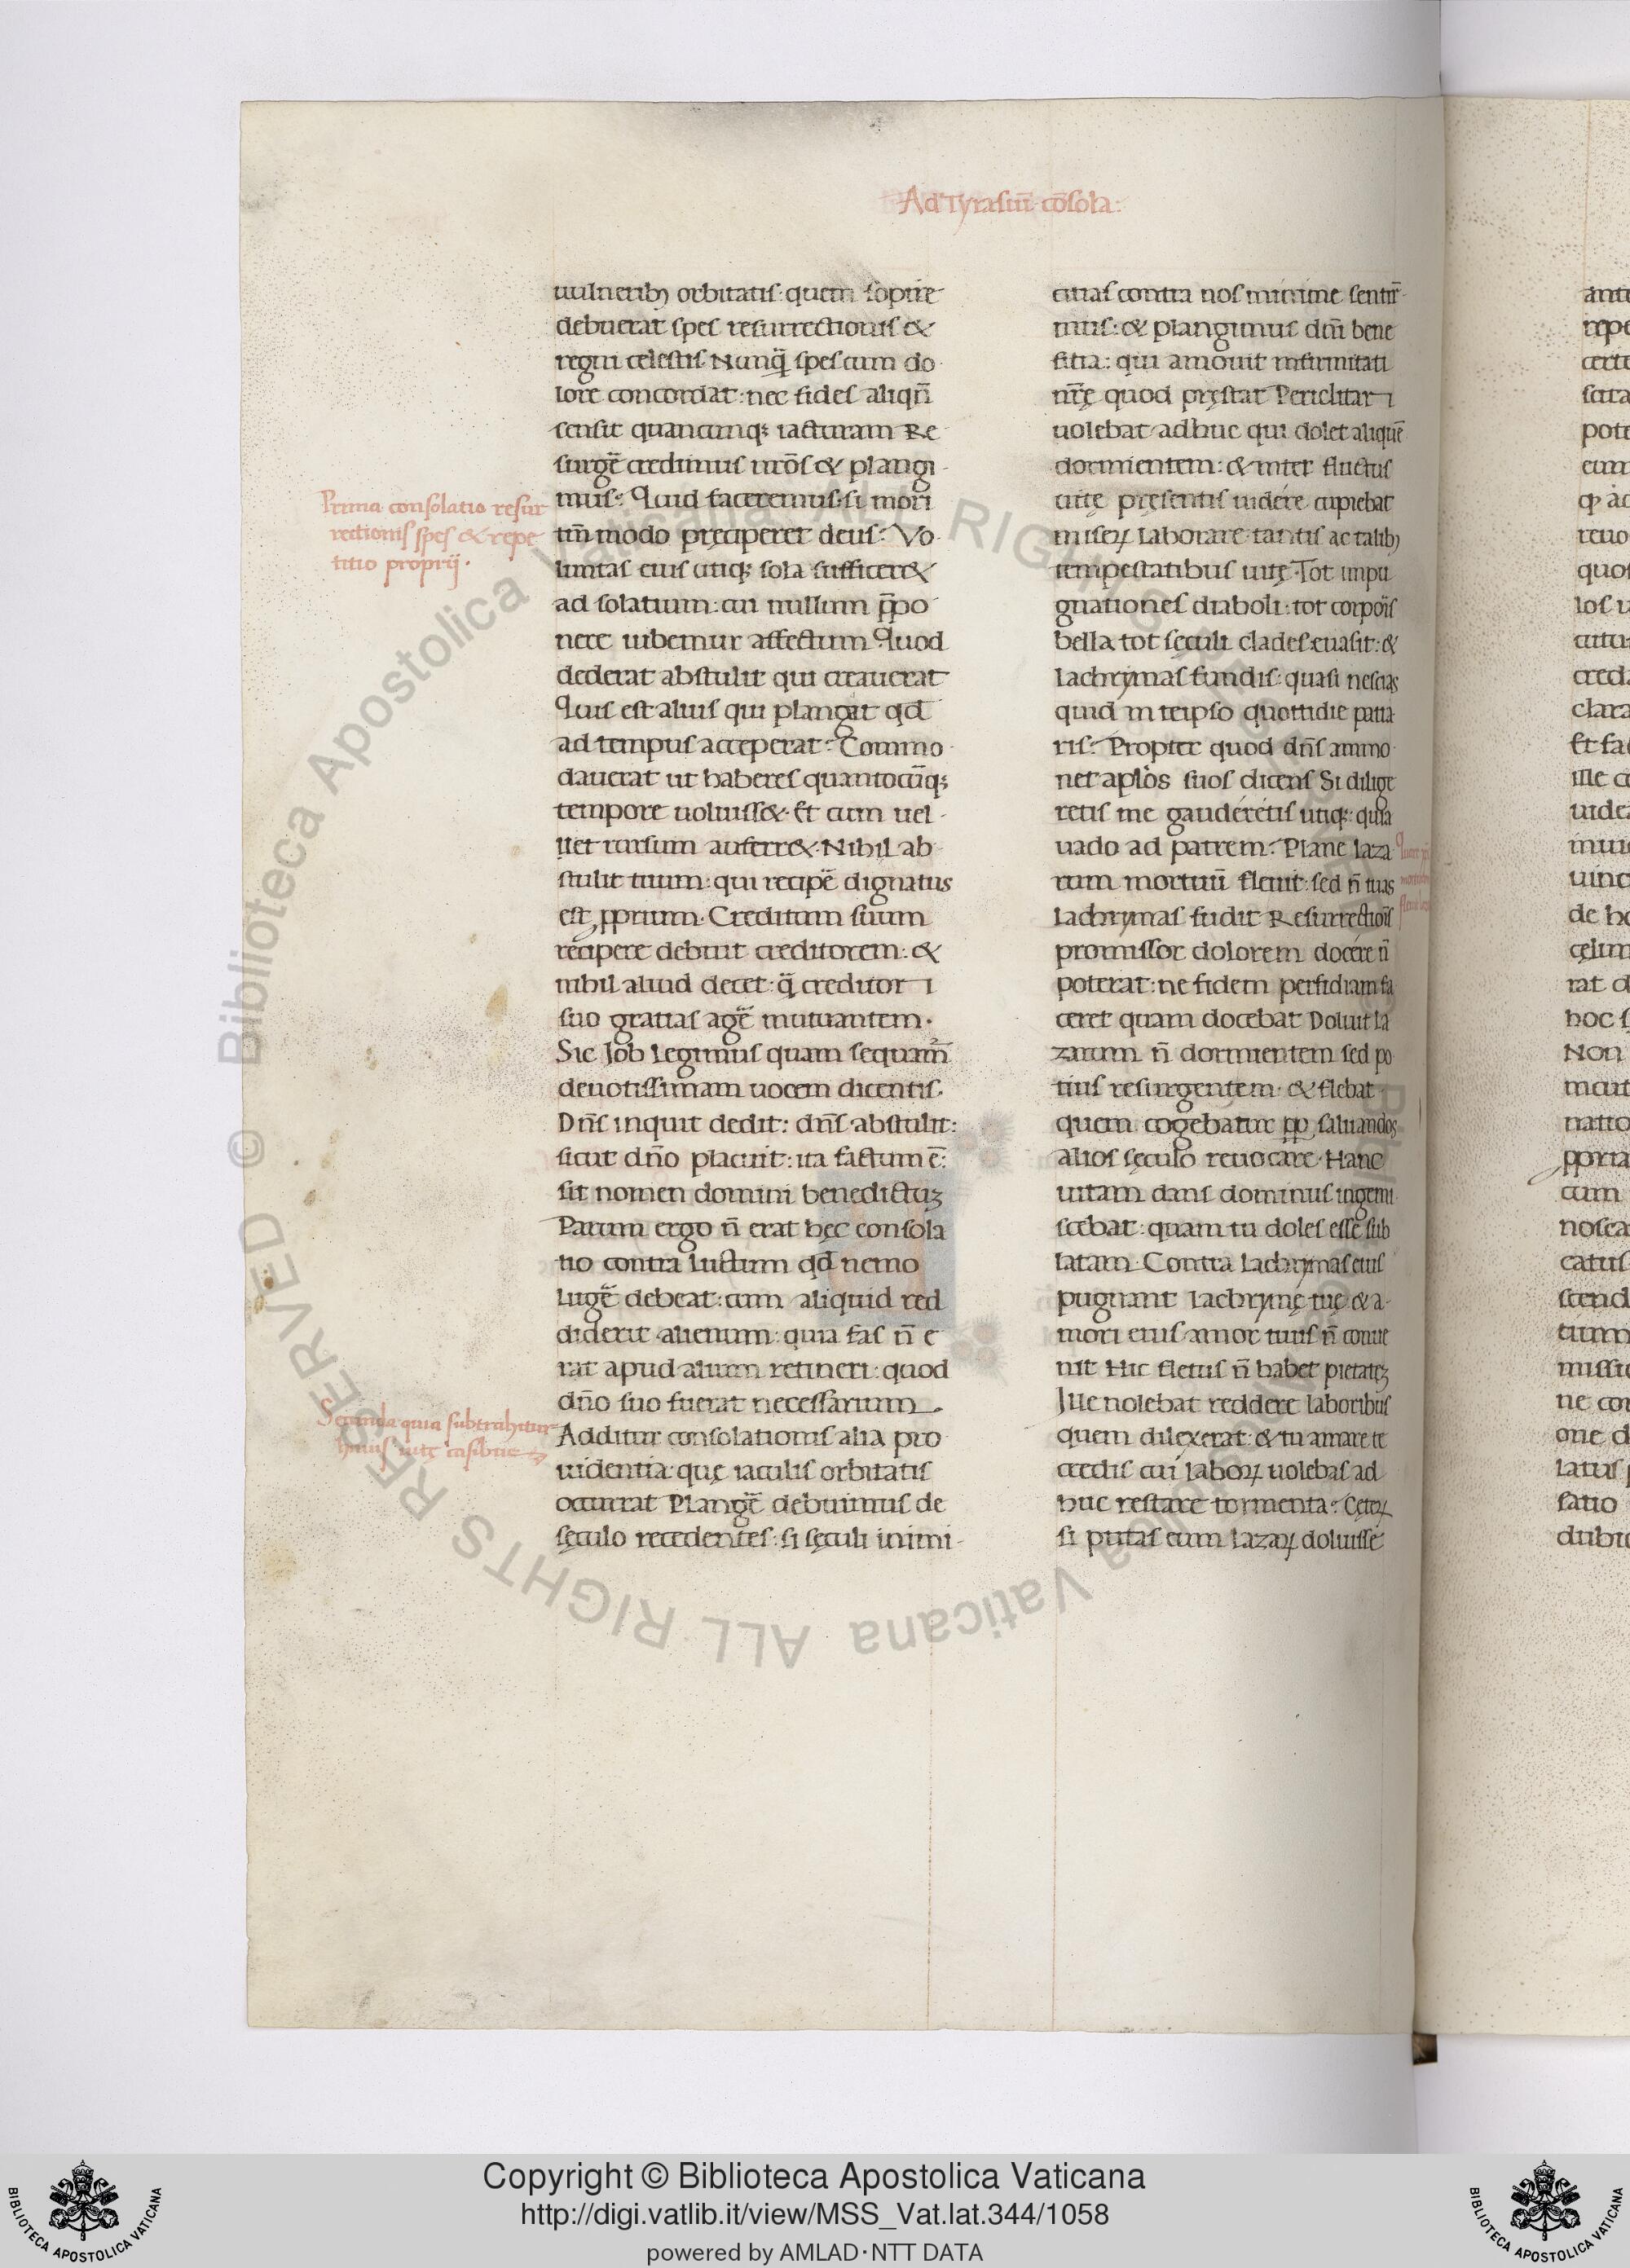 Ad Tyrasiū cōsola:
uulneribꝫ orbitatis: quem sopire
debuerat spes resurrectionis &
regni celestis. Nunq̄ spes cum do
lore concordat: nec fides aliqn̄
sensit quancunqꝫ iacturam Re
surgē credimus uiros & plangi
mus: Quid faceremus: si mori
tm̄ modo pręciperet deus: Vo
luntas eius utiqꝫ sola sufficer&
ad solatium: cui nullum p̄po
nere iubemur affectum Quod
dederat abstulit qui creauerat
Quis est alius qui plangit qd̄
ad tempus acceperat: Commo
dauerat ut haberes quantocūqꝫ
tempore uoluiss&. Et cum uel
let rursum auferr&. Nihil ab
stulit tuum: qui recipē dignatus
est ꝓprium. Creditum suum
recipere debuit creditorem: &
nihil aliud decet: q̄ creditori
suo gratias agē mutuantem.
Sic Job legimus quam sequam̄
deuotissimam uocem dicentis.
Dn̄s inquit dedit: dn̄s abstulit:
sicut dn̄o placuit: ita factum ē:
sit nomen domini benedictuꝫ
Parum ergo n̄ erat hęc consola
tio contra luctum qd̄ nemo
lugē debeat: cum aliquid red
diderit alienum: quia fas n̄ e
rat apud alium retineri: quod
dn̄o suo fuerat necessarium.
Additur consolationis alia pro
uidentia: quę iaculis orbitatis
occurrat Plangē debuimus de
sęculo recedentes: si sęculi inimi
Prima consolatio resur
rectionis spes & repe
titio proprij.
Secunda quia subtrahitur
huius uitę casibus
citias contra nos minime sentir̄
mus: & plangimus dn̄i bene
fitia: qui amouit infirmitati
nr̄ę quod pręstat Periclitari
uolebat adhuc qui dolet aliquē
dormientem: & inter fluctus
uitę pręsentis uidere cupiebat
miseꝝ laborare tantis ac talibꝫ
tempestatibus uitę. Tot impu
gnationes diaboli: tot corpoīs
bella tot sęculi clades euasit: &
lachrymas fundis: quasi nescias
quid in teipso quottidie patia
ris: Propter quod dn̄s ammo
net aplōs suos dicens Si dilige
retis me gauderetis utiqꝫ: quia
uado ad patrem: Plane laza
rum mortuū fleuit: sed n̄ tuas
lachrymas fudit Resurrectiōis
promissor dolorem docere n̄
poterat: ne fidem perfidiam fa
ceret quam docebat Doluit la
zarum n̄ dormientem sed po
tius resurgentem. & flebat
quem cogebatur ꝓꝑ saluandos
alios sęculo reuocare. Hanc
uitam dans dominus ingemi
scebat: quam tu doles esse sub
latam. Contra lachrymas eius
pugnant lachrymę tuę & a
mori eius amor tuus n̄ conue
nit Hic fletus n̄ habet pietateꝫ
Ille nolebat reddere laboribus
quem dilexerat: & tu amare te
credis cui laboꝝ uolebas ad
huc restare tormenta: Ceteꝝ
si putas eum lazaꝝ doluisse
Copyright © Biblioteca Apostolica Vaticana
http://digi.vatlib.it/view/MSS_Vat.lat.344/1058
powered by AMLAD·NTT DATA
BIBLIOTECA APOSTOLICA VATICANA
BIBLIOTECA APOSTOLICA VATICANA
© Biblioteca Apostolica Vaticana ALL RIGHTS RESERVED